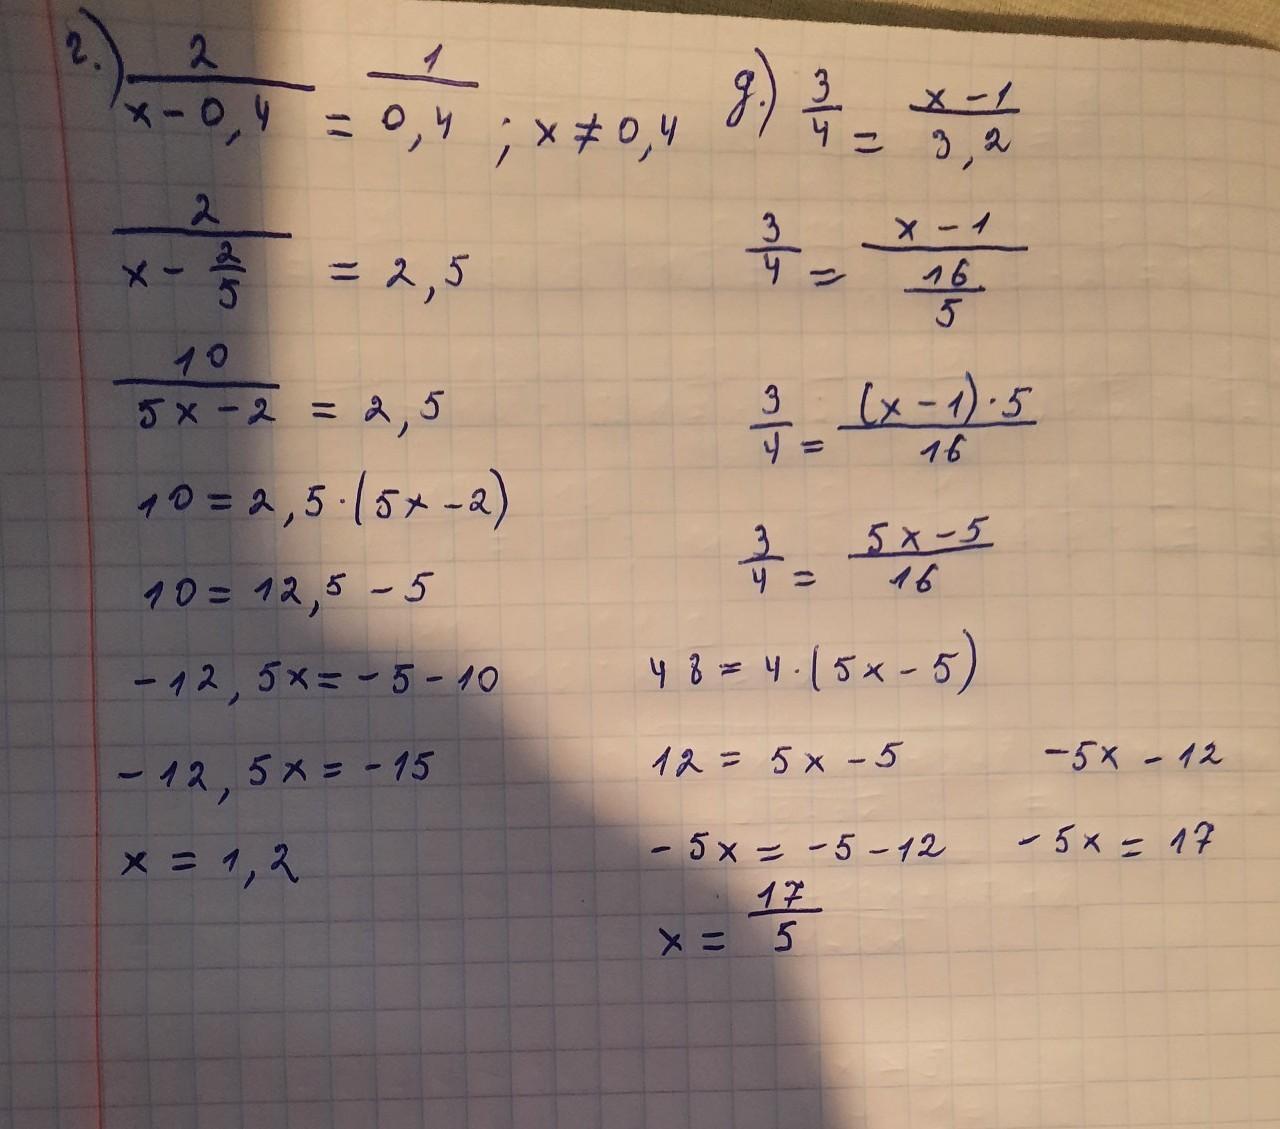 г.) 2/(x-0,4) = 1/0,4 ; x≠0,4
2/(x-2/5) = 2,5
10/(5x-2) = 2,5
10=2,5·(5x-2)
10=12,5-5
-12,5x=-5-10
-12,5x=-15
x=1,2
g.) 3/4 = (x-1)/3,2
3/4 = (x-1)/(16/5)
3/4 = (x-1)·5/16
3/4 = (5x-5)/16
48=4·(5x-5)
12=5x-5
-5x=-5-12
x=17/5
-5x-12
-5x=17